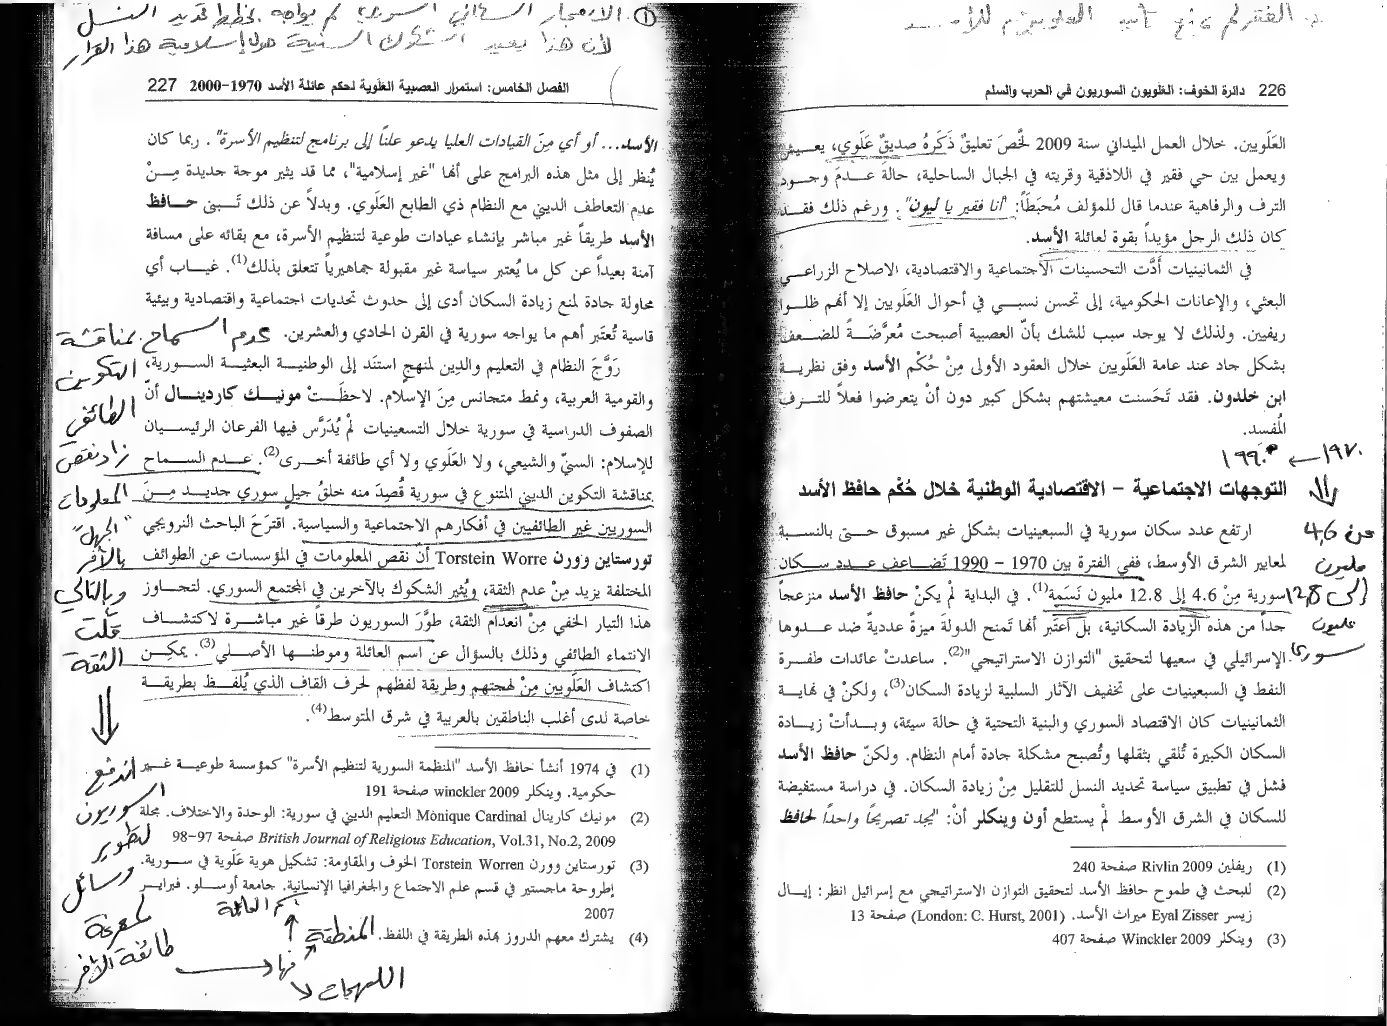 د. الفقر لم يمنع تأييد العلويون للأسد
226 دائرة الخوف: العَلَويون السوريون في الحرب والسلم
العَلَويين. خلال العمل الميداني سنة 2009 لخَّصَ تعليقٌ ذَكَرَهُ صديقٌ عَلَوي، يعـــيش
ويعمل بين حي فقير في اللاذقية وقريته في الجبال الساحلية، حالة عدم وجود
الترف والرفاهية عندما قال للمؤلف مُحبَطاً: "أنا فقير يا ليون". ورغم ذلك فقـد
كان ذلك الرجل مؤيداً بقوة لعائلة الأسد.
في الثمانينيات أدَّت التحسينات الاجتماعية والاقتصادية، الاصلاح الزراعـي
البعثي، والإعانات الحكومية، إلى تحسن نسبـي في أحوال العَلَويين إلا أنهم ظلـوا
ريفيين. ولذلك لا يوجد سبب للشك بأنّ العصبية أصبحت مُعرَّضَـةً للضـعف
بشكل جاد عند عامة العَلَويين خلال العقود الأولى مِنْ حُكْم الأسد وفق نظريـة
ابن خلدون. فقد تَحَسنت معيشتهم بشكل كبير دون أنْ يتعرضوا فعلاً للتـرف
المُفسد.
١٩٧٠ ← ١٩٩٠
التوجهات الاجتماعية – الاقتصادية الوطنية خلال حُكْم حافظ الأسد
ارتفع عدد سكان سورية في السبعينيات بشكل غير مسبوق حتـى بالنسبة
لمعايير الشرق الأوسط، ففي الفترة بين 1970 – 1990 تَضـاعف عـدد سـكان
سورية مِنْ 4.6 إلى 12.8 مليون نَسَمة(1). في البداية لم يكنْ حافظ الأسد منزعجاً
جداً من هذه الزيادة السكانية، بل اعتَبر أنها تَمنح الدولة ميزةً عدديةً ضد عـدوها
الإسرائيلي في سعيها لتحقيق "التوازن الاستراتيجي"(2). ساعدتْ عائدات طفـرة
النفط في السبعينيات على تخفيف الآثار السلبية لزيادة السكان(3)، ولكنْ في نهايـة
الثمانينيات كان الاقتصاد السوري والبنية التحتية في حالة سيئة، وبـدأتْ زيـادة
السكان الكبيرة تُلقي بثقلها وتُصبح مشكلة جادة أمام النظام. ولكنّ حافظ الأسد
فشل في تطبيق سياسة تحديد النسل للتقليل مِنْ زيادة السكان. في دراسة مستفيضة
للسكان في الشرق الأوسط لم يستطع أون وينكلر أنْ: "يجد تصريحاً واحداً لحافظ
من 4,6
مليون
إلى 12,8
مليون
سوري
(1) ريفلين Rivlin 2009 صفحة 240
(2) للبحث في طموح حافظ الأسد لتحقيق التوازن الاستراتيجي مع إسرائيل انظر: إيـال
زيسر Eyal Zisser ميراث الأسد. (London: C. Hurst, 2001) صفحة 13
(3) وينكلر Winckler 2009 صفحة 407
① الانفجار السكاني السوري لم يواجه بخطط تحديد النسل
لأن هذا يعتبر هذا القرار
الفصل الخامس: استمرار العصبية العَلَوية لحكم عائلة الأسد 1970–2000 227
الأسد... أو أي مِنَ القيادات العليا يدعو علناً إلى برنامج لتنظيم الأسرة". ربما كان
يُنظر إلى مثل هذه البرامج على أنها "غير إسلامية"، مما قد يثير موجة جديدة مِـنْ
عدم التعاطف الديني مع النظام ذي الطابع العَلَوي. وبدلاً عن ذلك تَـبنى حـافظ
الأسد طريقاً غير مباشر بإنشاء عيادات طوعية لتنظيم الأسرة، مع بقائه على مسافة
آمنة بعيداً عن كل ما يُعتبر سياسة غير مقبولة جماهيرياً تتعلق بذلك(1). غيـاب أي
محاولة جادة لمنع زيادة السكان أدى إلى حدوث تحديات اجتماعية واقتصادية وبيئية
قاسية تُعتَبر أهم ما يواجه سورية في القرن الحادي والعشرين.
رَوَّجَ النظام في التعليم والدِين لمنهجٍ استنَد إلى الوطنيـة البعثيـة السـورية،
والقومية العربية، ونمط متجانس مِنَ الإسلام. لاحظَـتْ مونيـك كاردينـال أنّ
الصفوف الدراسية في سورية خلال التسعينيات لمْ يُدَرَّس فيها الفرعان الرئيسـيان
للإسلام: السنيّ والشيعي، ولا العَلَوي ولا أي طائفة أخـرى(2). عـدم السـماح
بمناقشة التكوين الديني المتنوع في سورية قُصِدَ منه خلقُ جيلٍ سوري جديـد مِـنَ
السوريين غير الطائفيين في أفكارهم الاجتماعية والسياسية. اقترَحَ الباحث النرويجي
تورستاين وورن Torstein Worre أنّ نقص المعلومات في المؤسسات عن الطوائف
المختلفة يزيد مِنْ عدم الثقة، ويُثير الشكوك بالآخرين في المجتمع السوري. لتجـاوز
هذا التيار الخفي مِنْ انعدام الثقة، طوَّرَ السوريون طرقاً غير مباشـرة لاكتشـاف
الانتماء الطائفي وذلك بالسؤال عن اسم العائلة وموطنـها الأصـلي(3). يمكـن
اكتشاف العَلَويين مِنْ لهجتهم وطريقة لفظهم لحرف القاف الذي يُلفـظ بطريقـة
خاصة لدى أغلب الناطقين بالعربية في شرق المتوسط(4).
عدم السماح بمناقشة
التكوين
الطائفي
زاد نقص
المعلومات
"الجهل"
بالآخر
وبالتالي
قلّت
الثقة
اندفع
السوريون
لتطوير
وسائل
لمعرفة
طائفة الآخر
(1) في 1974 أنشأ حافظ الأسد "المنظمة السورية لتنظيم الأسرة" كمؤسسة طوعيـة غـير
حكومية. وينكلر winckler 2009 صفحة 191
(2) مونيك كارينال Monique Cardinal التعليم الديني في سورية: الوحدة والاختلاف. مجلة
British Journal of Religious Education, Vol.31, No.2, 2009 صفحة 97–98
(3) تورستاين وورن Torstein Worren الخوف والمقاومة: تشكيل هوية عَلَوية في سـورية.
إطروحة ماجستير في قسم علم الاجتماع والجغرافيا الإنسانية. جامعة أوسـلو. فبرايـر
2007
(4) يشترك معهم الدروز بهذه الطريقة في اللفظ.
اسم العائلة
المنطقة
منها
اللهجات